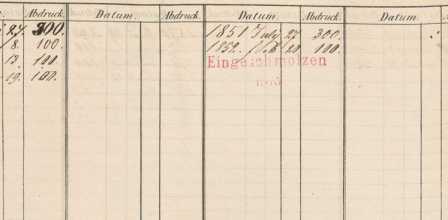 Abdruck. Datum. Abdruck. Datum. Abdruck. Datum.
27. 300. 1851 July 27 300.
8. 100. 1852. Feb 20 100.
13. 100. Eingeschmolzen
19. 100.